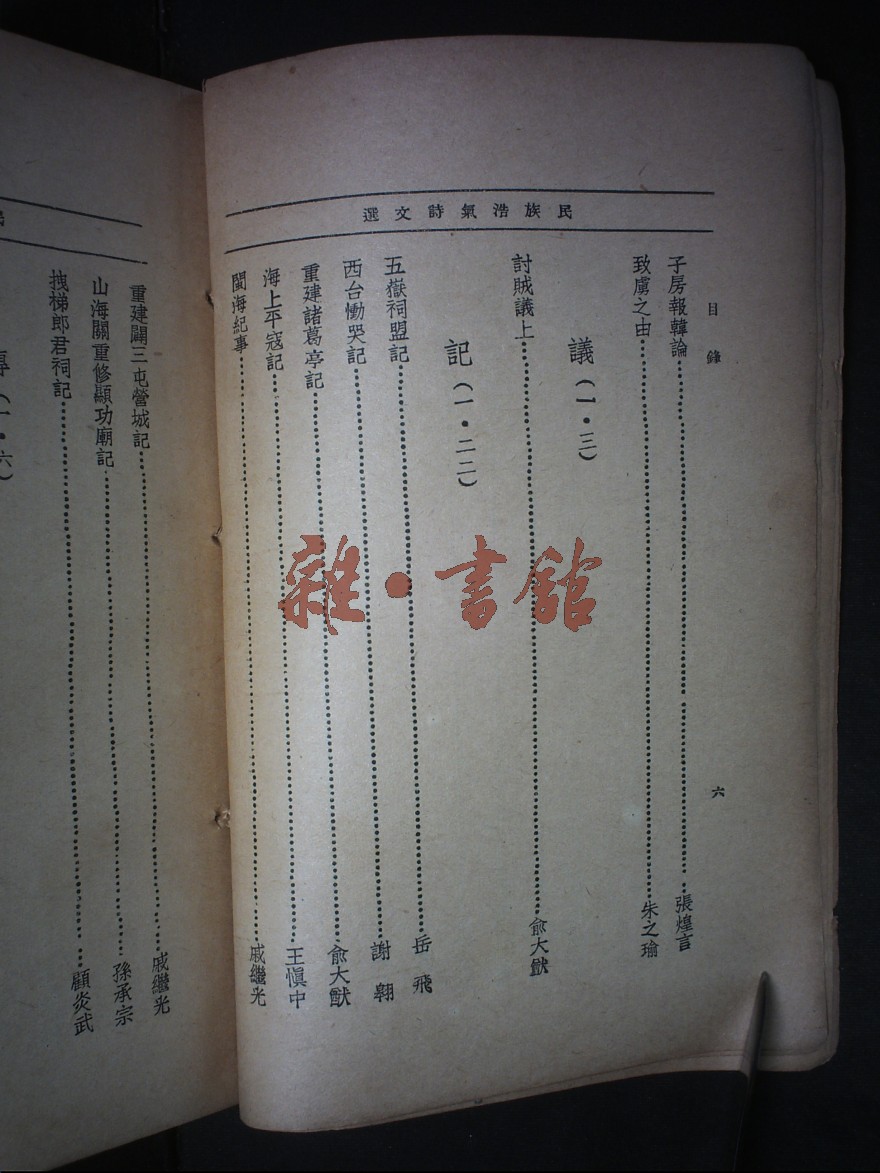 民族浩氣詩文選
目錄
六
子房報韓論……張煌言
致虜之由……朱之瑜
議（一·三）
討賊議上……俞大猷
記（一·二二）
五嶽祠盟記……岳飛
西台慟哭記……謝翱
重建諸葛亭記……俞大猷
海上平寇記……王慎中
閩海紀事……戚繼光
重建闢三屯營城記……戚繼光
山海關重修顯功廟記……孫承宗
拽梯郎君祠記……顧炎武
（一·六）
雜·書館